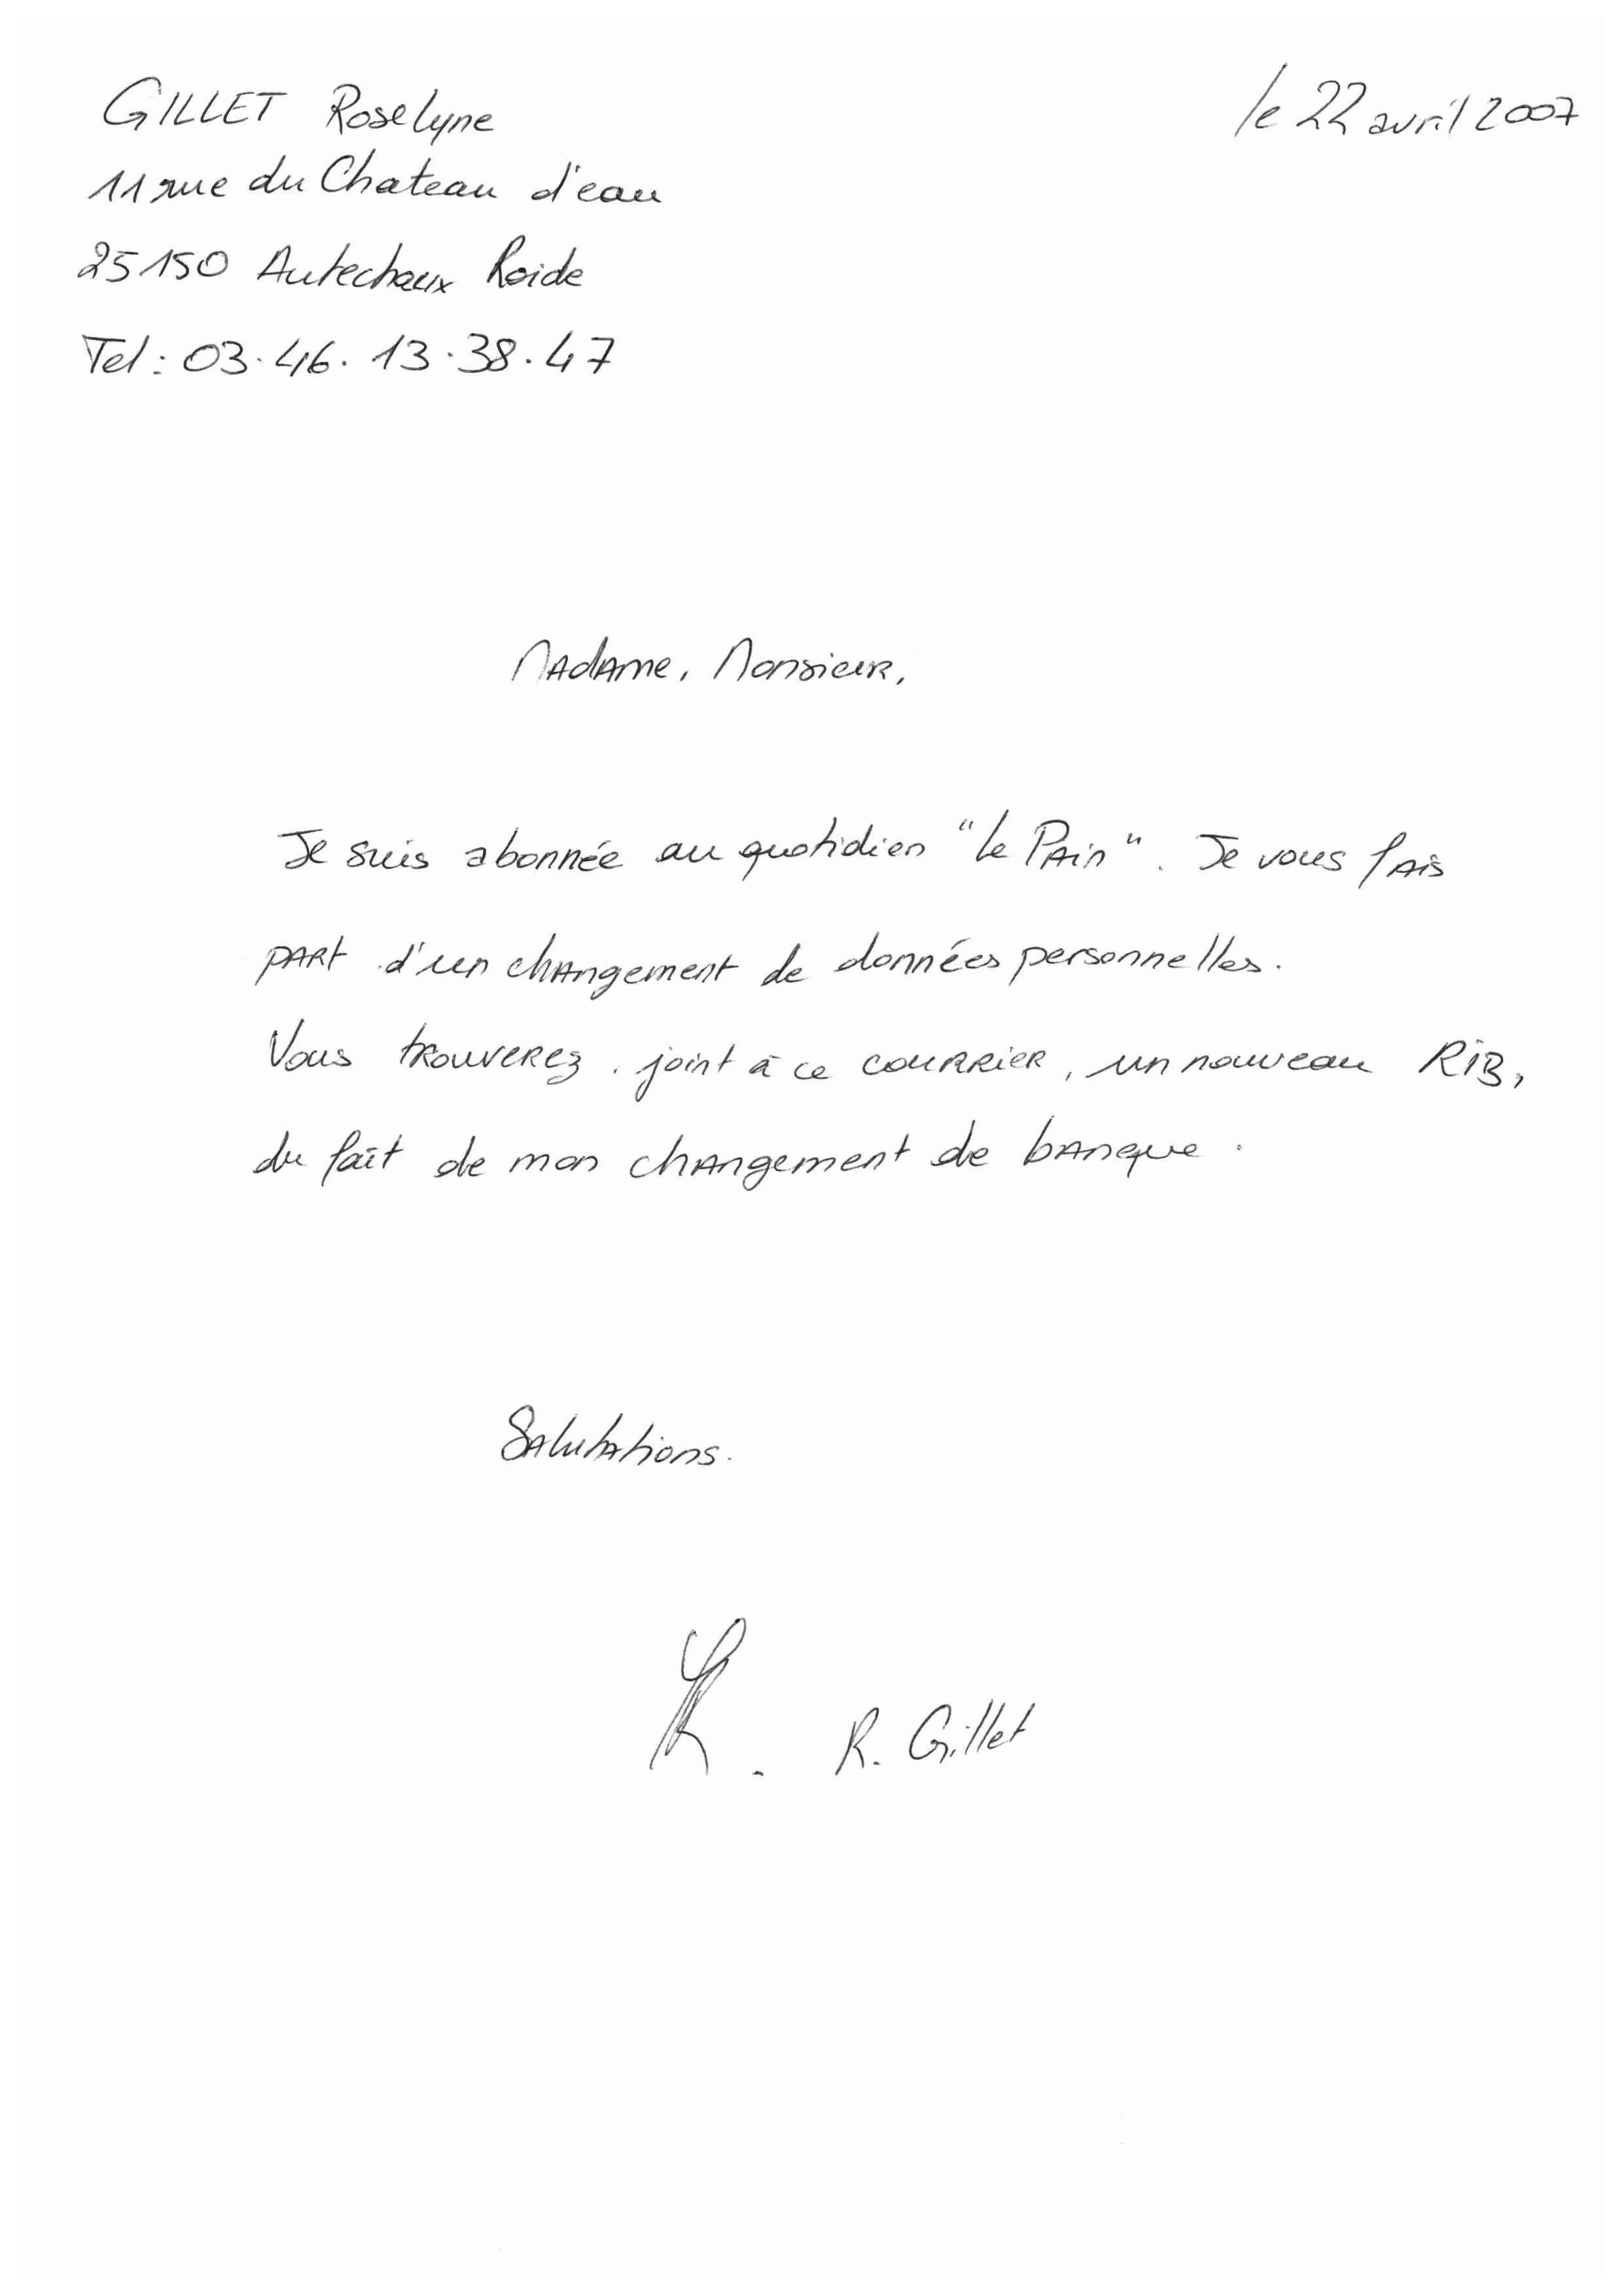 GILLET Roselyne
le 22 avril 2007
11 rue du Chateau d'eau
25150 Autechaux Roide
Tel : 03.46.13.38.47
Madame, Monsieur,
Je suis abonnée au quotidien "Le Pain". Je vous fais
part d'un changement de données personnelles.
Vous trouverez, joint à ce courrier, un nouveau RIB,
du fait de mon changement de banque.
Salutations.
R. Gillet